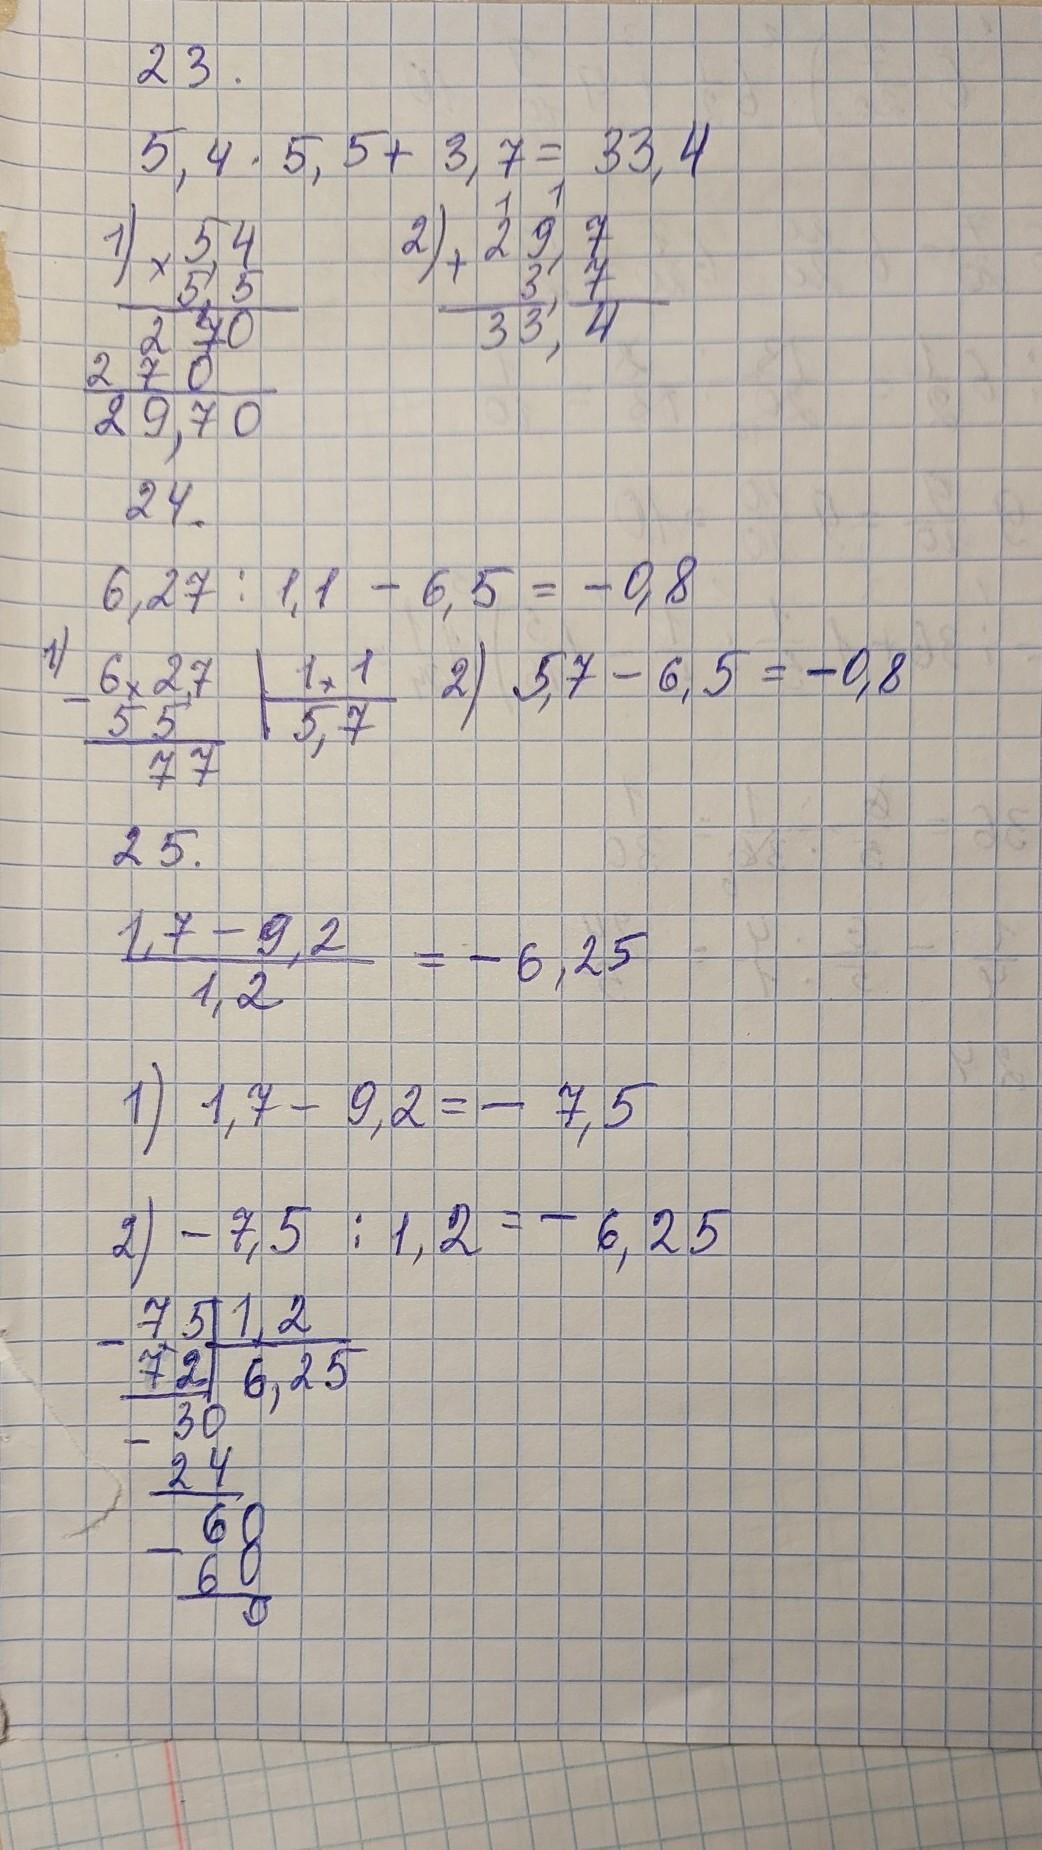 23.
5,4 · 5,5 + 3,7 = 33,4
1) × 5,4
5,5
2 70
2 7 0
29,70
2) + 29,7
1 1
3,7
33,4
24.
6,27 : 1,1 - 6,5 = -0,8
1) - 6,2,7 | 1,1
5 5 | 5,7
7 7
2) 5,7 - 6,5 = -0,8
25.
1,7 - 9,2
1,2
= -6,25
1) 1,7 - 9,2 = - 7,5
2) - 7,5 : 1,2 = - 6,25
- 75 | 1,2
72 | 6,25
- 30
24
- 60
60
0